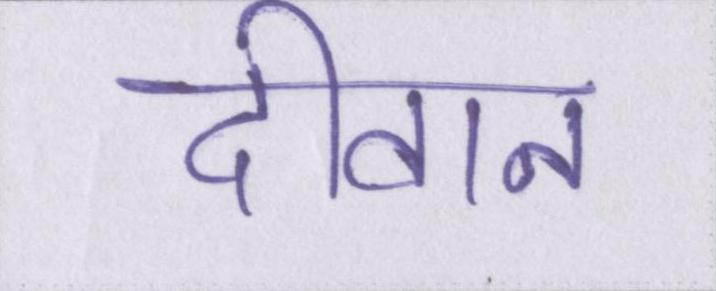 दीवान